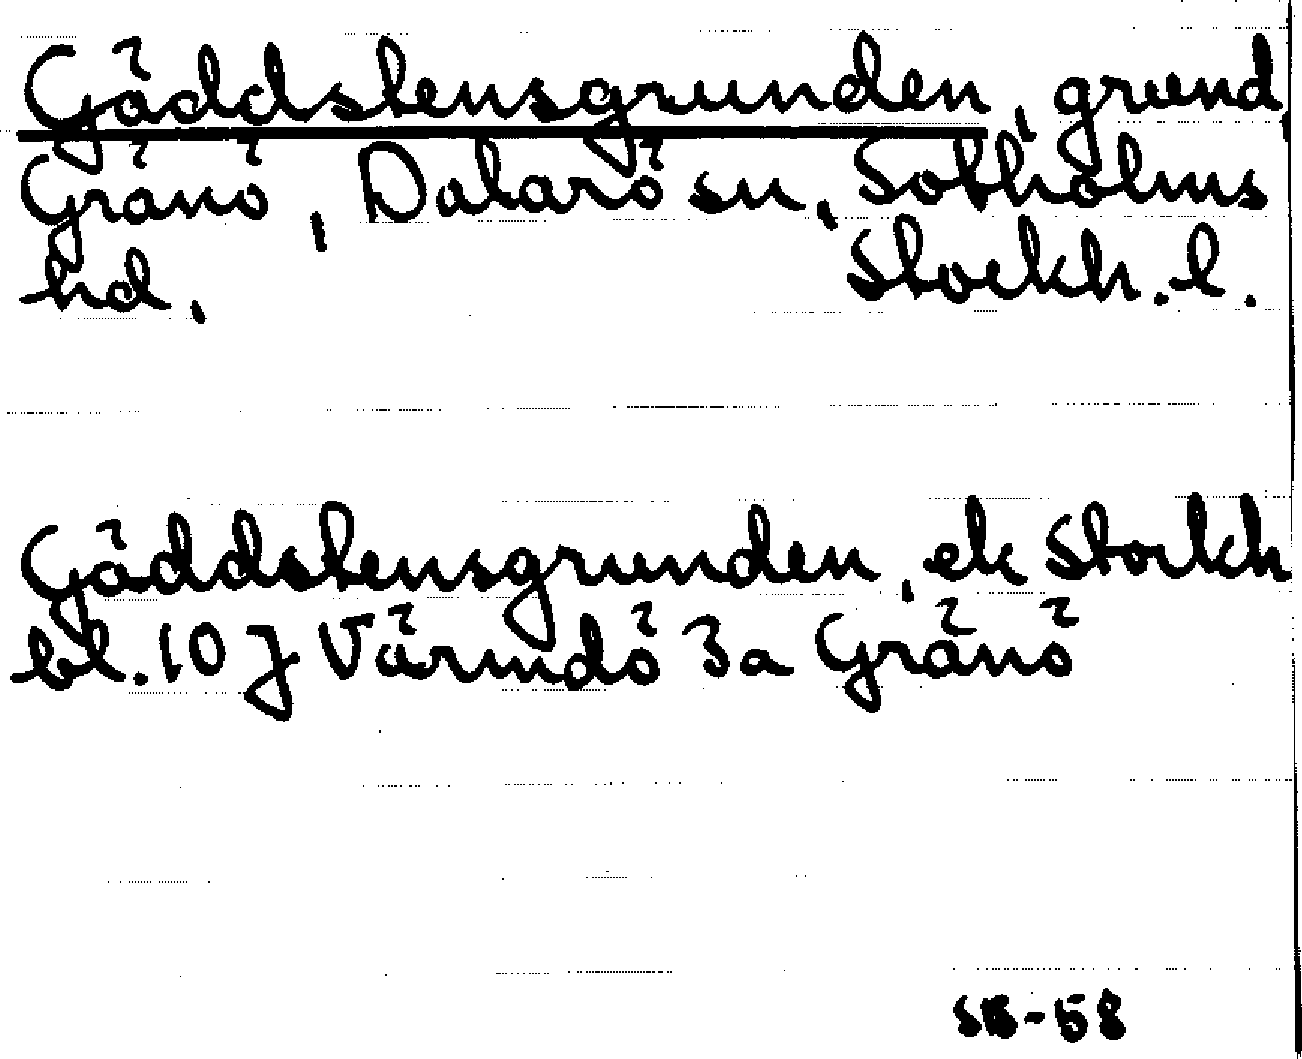 Gäddstensgrunden, grund
Gränö, Dalarö sn, Sotholms
hd, Stockh. l.
Gäddstensgrunden, ek Stockh
bl. 10 J Värmdö 3a Gränö
SB-58